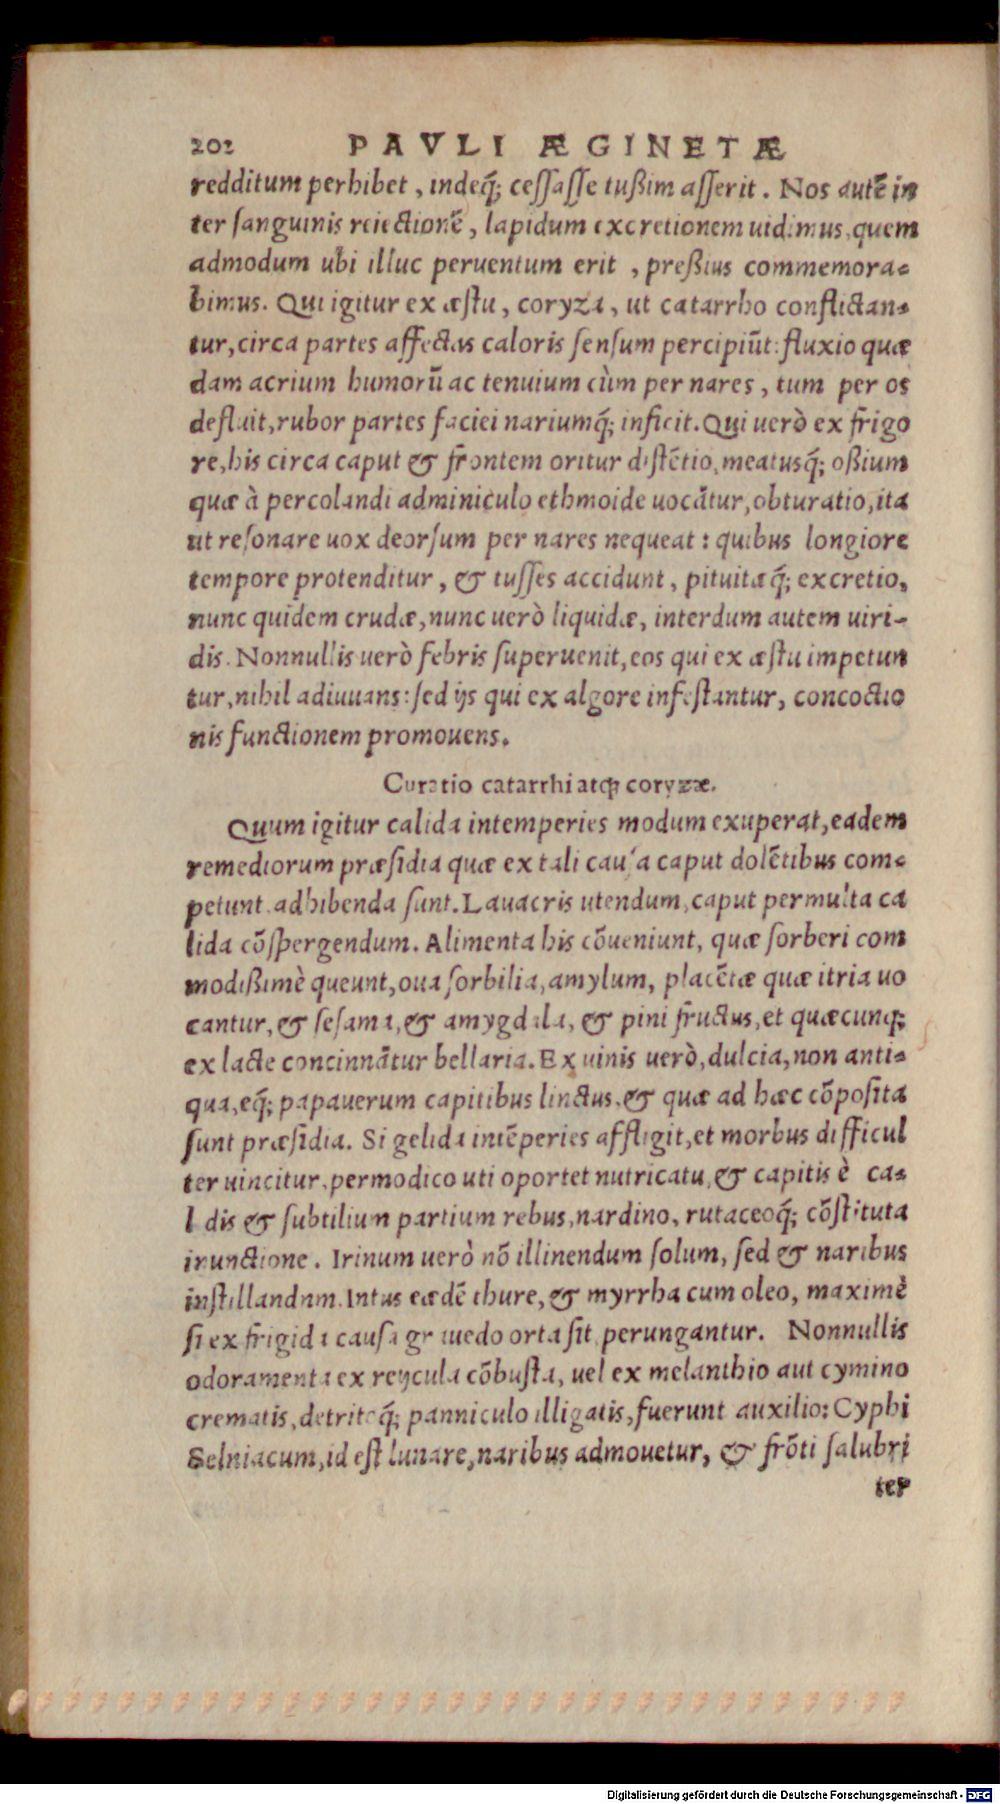 202 PAVLI ÆGINETÆ
redditum perhibet, indeq́; cessasse tußim asserit. Nos autẽ in
ter sanguinis reiectionẽ, lapidum excretionem uidimus, quem
admodum ubi illuc peruentum erit, preßius commemora-
bimus. Qui igitur ex æstu, coryza, ut catarrho conflictan-
tur, circa partes affectas caloris sensum percipiũt: fluxio quæ
dam acrium humorũ ac tenuium cùm per nares, tum per os
defluit, rubor partes faciei nariumq́; inficit. Qui uerò ex frigo
re, his circa caput & frontem oritur distẽtio, meatusq́; oßium
quæ à percolandi adminiculo ethmoide uocãtur, obturatio, ita
ut resonare uox deorsum per nares nequeat: quibus longiore
tempore protenditur, & tusses accidunt, pituitæq́; excretio,
nunc quidem crudæ, nunc uerò liquidæ, interdum autem uiri-
dis. Nonnullis uerò febris superuenit, eos qui ex æstu impetun
tur, nihil adiuuans: sed ijs qui ex algore infestantur, concoctio
nis functionem promouens.
Curatio catarrhi atq; coryzæ.
Quum igitur calida intemperies modum exuperat, eadem
remediorum præsidia quæ ex tali causa caput dolẽtibus com-
petunt, adhibenda sunt. Lauacris utendum, caput permulta ca
lida cõspergendum. Alimenta his cõueniunt, quæ sorberi com
modißimè queunt, oua sorbilia, amylum, placẽtæ quæ itria uo
cantur, & sesama, & amygdala, & pini fructus, et quæcunq;
ex lacte concinnãtur bellaria. Ex uinis uerò, dulcia, non anti-
qua, eq́; papauerum capitibus linctus, & quæ ad hæc cõposita
sunt præsidia. Si gelida intẽperies affligit, et morbus difficul
ter uincitur, permodico uti oportet nutricatu, & capitis è ca-
lidis & subtilium partium rebus, nardino, rutaceoq́; cõstituta
inunctione. Irinum uerò nõ illinendum solum, sed & naribus
instillandum. Intus eædẽ thure, & myrrha cum oleo, maximè
si ex frigida causa grauedo orta sit, perungantur. Nonnullis
odoramenta ex reijcula cõbusta, uel ex melanthio aut cymino
crematis, detritoq́; panniculo illigatis, fuerunt auxilio: Cyphi
Selniacum, id est lunare, naribus admouetur, & frõti salubri
ter
Digitalisierung gefördert durch die Deutsche Forschungsgemeinschaft - DFG